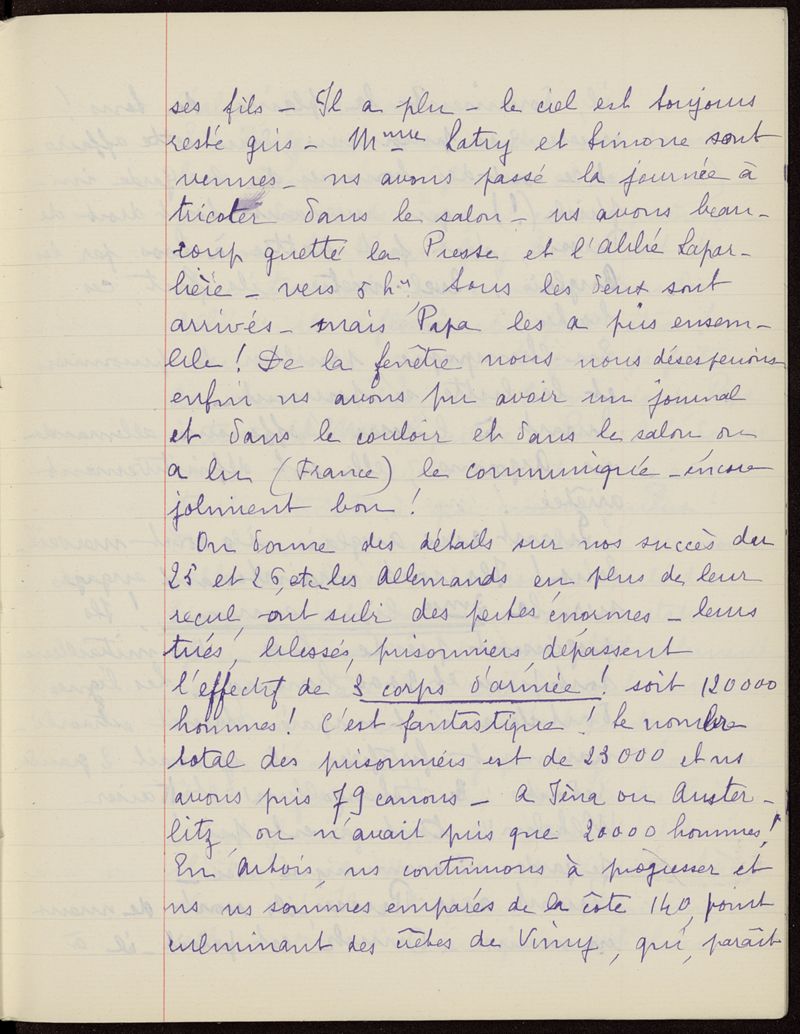 ses fils – Il a plu – le ciel est toujours
resté gris – Mme Latry et Simone sont
venues – ns avons passé la journée à
tricoter dans le salon – ns avons beau-
coup guetté la Presse et l'Abbé Lapar-
lière – vers 5 hs, tous les deux sont
arrivés – mais Papa les a pris ensem-
ble ! De la fenêtre nous nous désespérions
enfin ns avons pu avoir un journal
et dans le couloir et dans le salon on
a lu (France) le communiqué – encore
joliment bon !
On donne des détails sur nos succès du
25 et 26, et les Allemands en plus de leur
recul, ont subi des pertes énormes – leurs
tués, blessés, prisonniers, dépassent
l'effectif de 3 corps d'armée ! soit 120000
hommes ! C'est fantastique ! Le nombre
total des prisonniers est de 23000 et ns
avons pris 79 canons – A Iéna ou Auster-
litz, on n'avait pris que 20000 hommes !
En Artois, ns continuons à progresser et
ns ns sommes emparés de la côte 140, point
culminant des crêtes de Vimy, qui, paraît